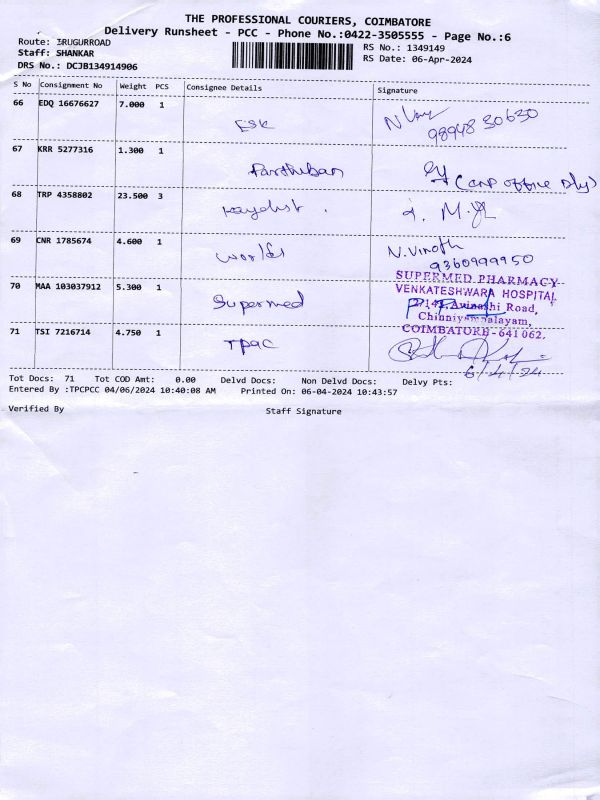 THE PROFESSIONAL COURIERS, COIMBATORE
Delivery Runsheet - PCC - Phone No.:0422-3505555 - Page No.:6
Route: IRUGURROAD
RS No.: 1349149
Staff: SHANKAR
RS Date: 06-Apr-2024
DRS No.: DCJB134914906
S No Consignment No Weight PCS Consignee Details Signature
66 EDQ 16676627 7.000 1
ESK
98948 30630
67 KRR 5277316 1.300 1
Parthiban
68 TRP 4358802 23.500 3
69 CNR 1785674 4.600 1
N. Vinoth
World
9360999950
70 MAA 103037912 5.300 1
Supermed
SUPERMED PHARMACY
VENKATESHWARA HOSPITAL
Avinashi Road,
Chinniyampalayam,
COIMBATORE-641 062.
71 TSI 7216714 4.750 1
TPAC
6/4/24
Tot Docs: 71 Tot COD Amt: 0.00 Delvd Docs: Non Delvd Docs: Delvy Pts:
Entered By :TPCPCC 04/06/2024 10:40:08 AM Printed On: 06-04-2024 10:43:57
Verified By Staff Signature